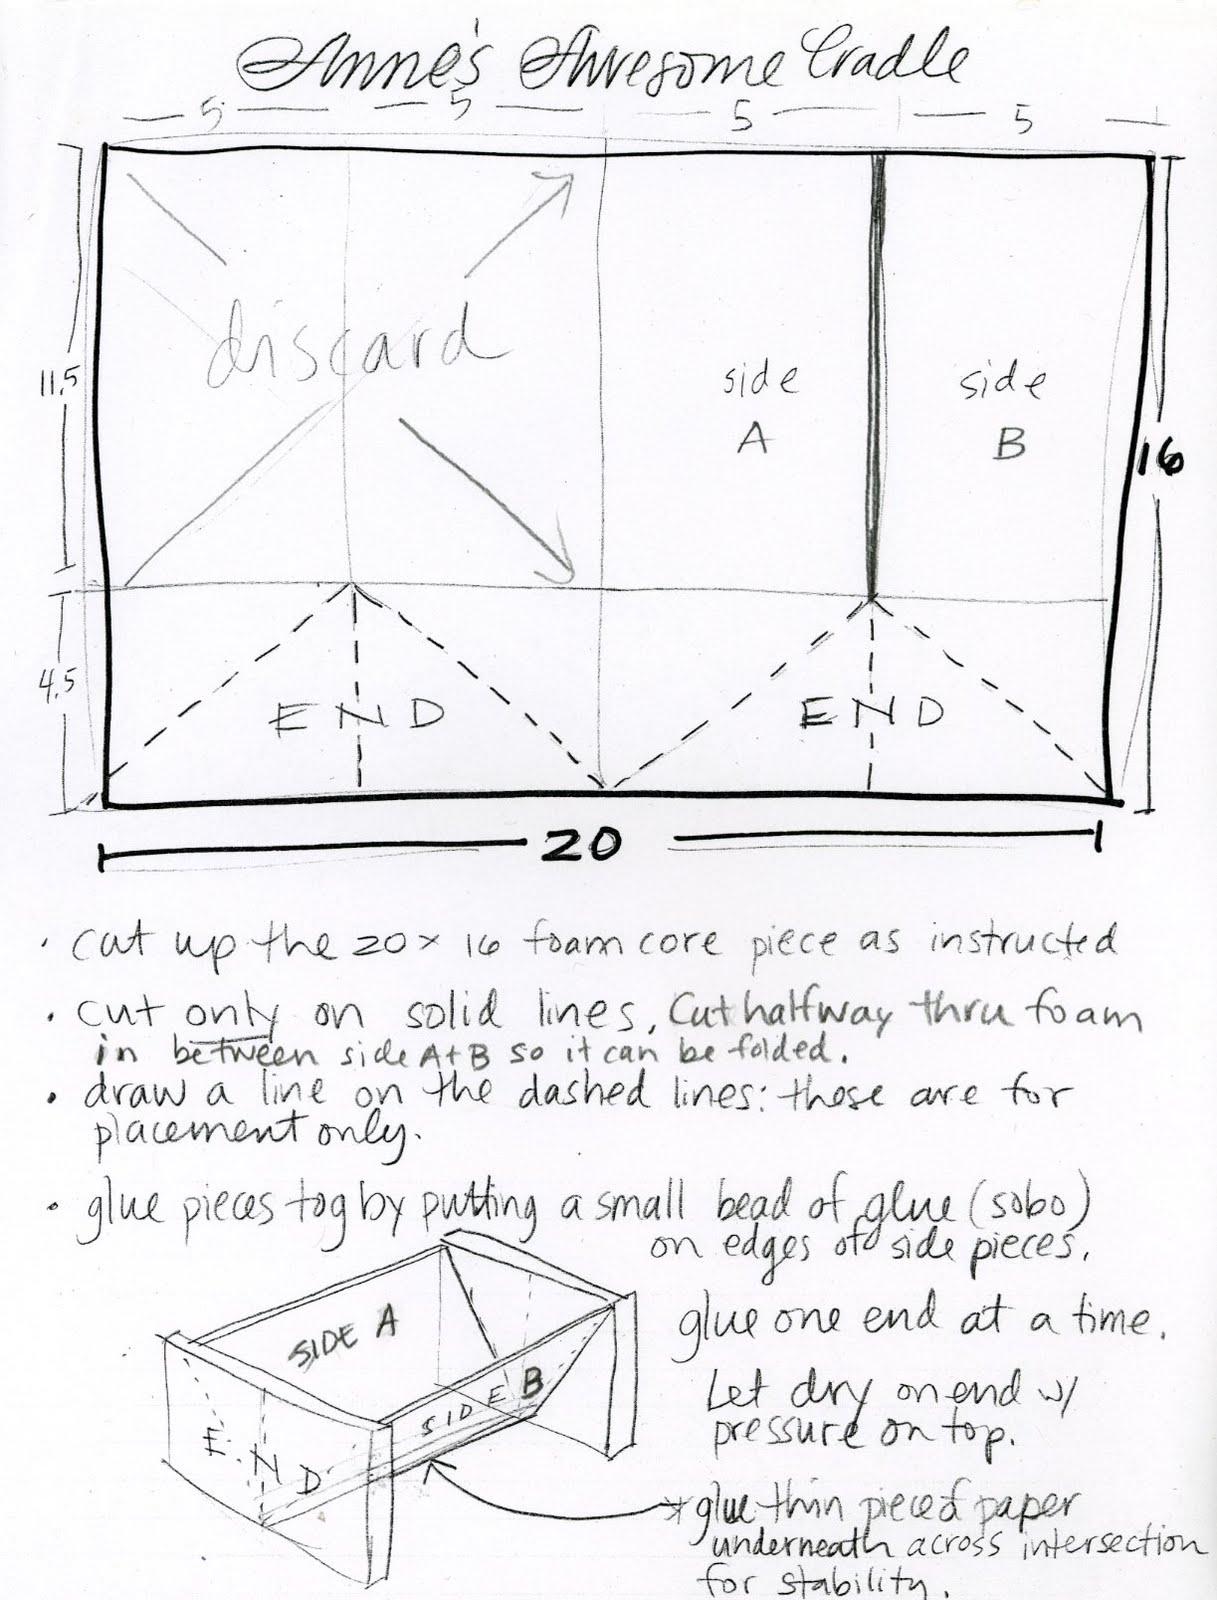 Anne's Awesome Cradle
5 5 5 5
discard
11.5
side
A
side
B
16
4.5
END
END
20
· cut up the 20 x 16 foam core piece as instructed
· cut only on solid lines. Cut halfway thru foam
in between side A+B so it can be folded.
· draw a line on the dashed lines: these are for
placement only.
· glue pieces tog by putting a small bead of glue (sobo)
on edges of side pieces.
glue one end at a time.
Let dry on end w/
pressure on top.
SIDE A
SIDE B
END
* glue thin piece of paper
underneath across intersection
for stability.